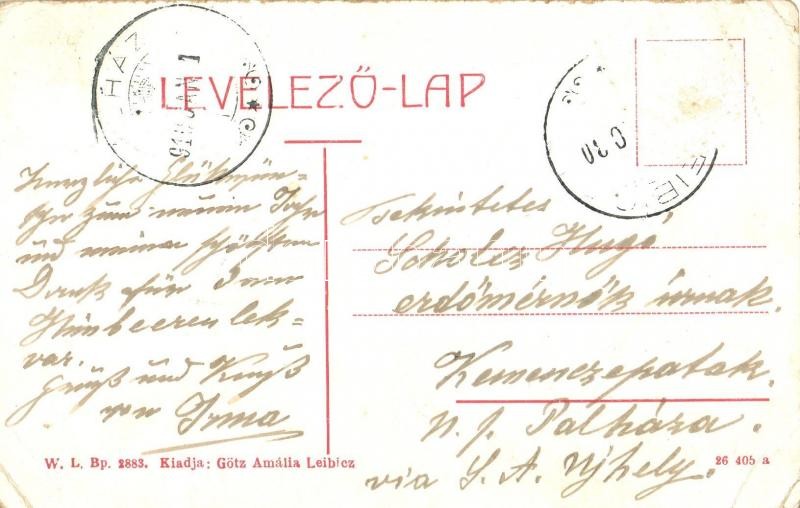 HÁZ
910 JAN 1
LEVELEZŐ-LAP
EIBIC
Herzliche Glückwün-
sche zum neuen Jahr
und meinen schönsten
Dank für den
Himbeeren lek-
var.
Gruß und Kuß
von Irma
Tekintetes
Scholcz Hugó
erdőmérnök úrnak.
Kemenczepatak.
u. p. Palháza.
via S. A. Ujhely.
W. L. Bp. 2883. Kiadja: Götz Amália Leibicz
26 405 a